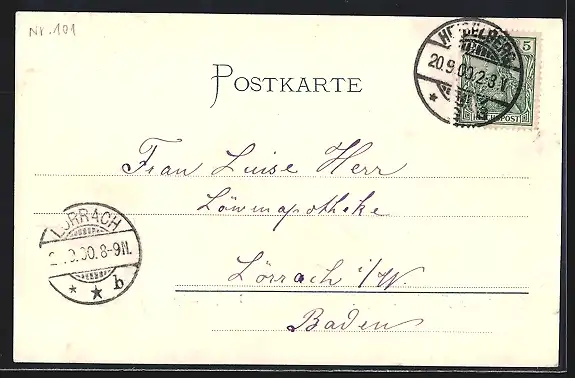 Nr. 101
HEIDELBERG
20.9.00.2-3N.
5
REICHSPOST
POSTKARTE
Frau Luise Herr
Löwenapotheke
LÖRRACH
.9.00.8-9N.
b
Lörrach i/W.
Baden